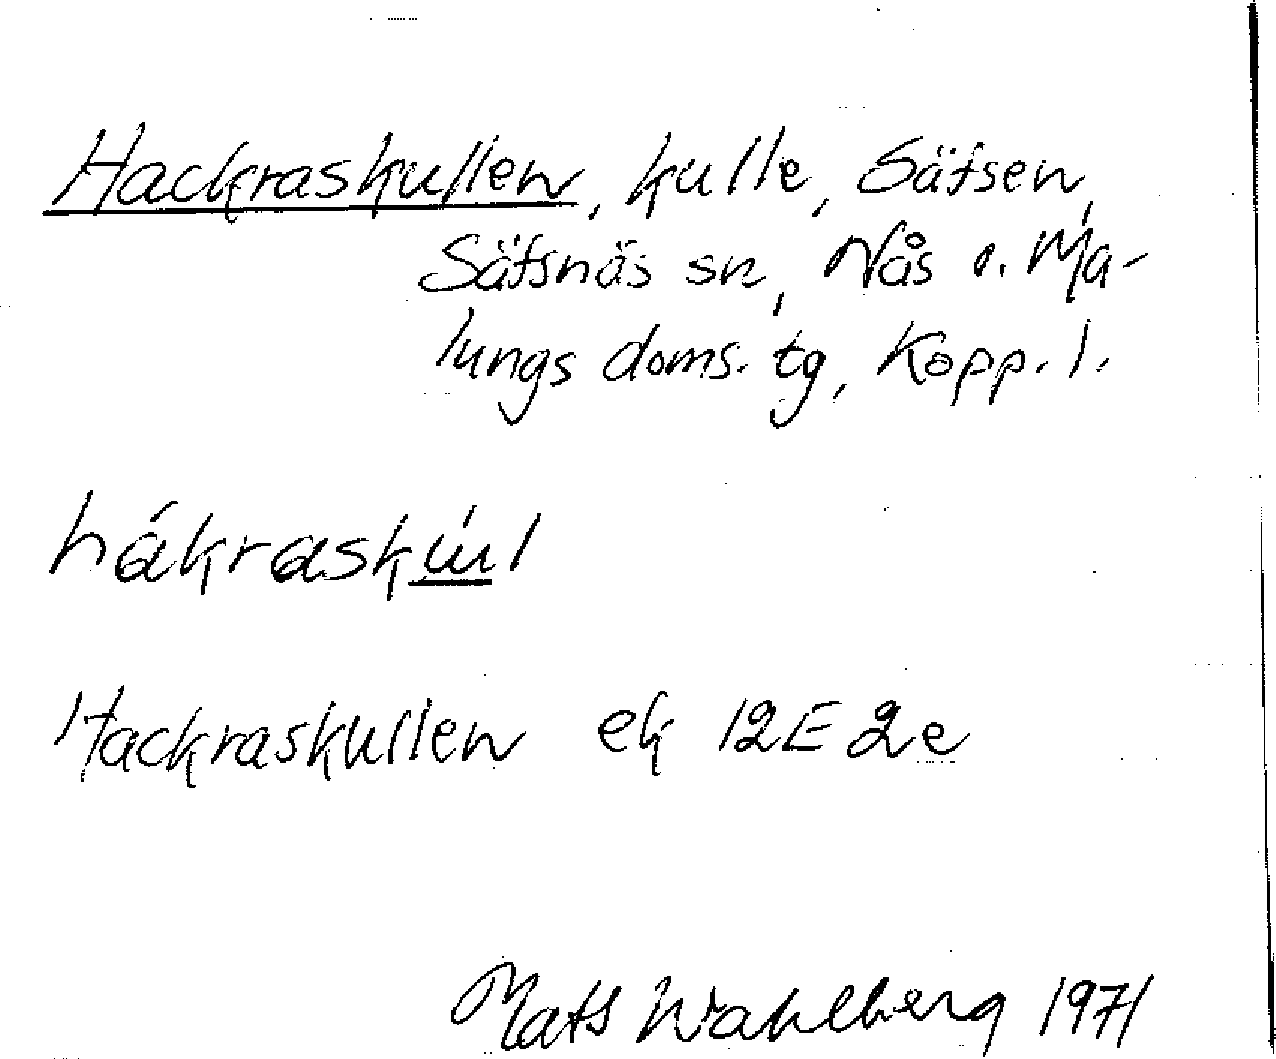 Hackraskullen, kulle, Säfsen,
Säfsnäs sn, Nås o. Ma-
lungs doms. tg, Kopp. l.
hákraskúl
Hackraskullen ek 12E 2e
Mats Wahlberg 1971